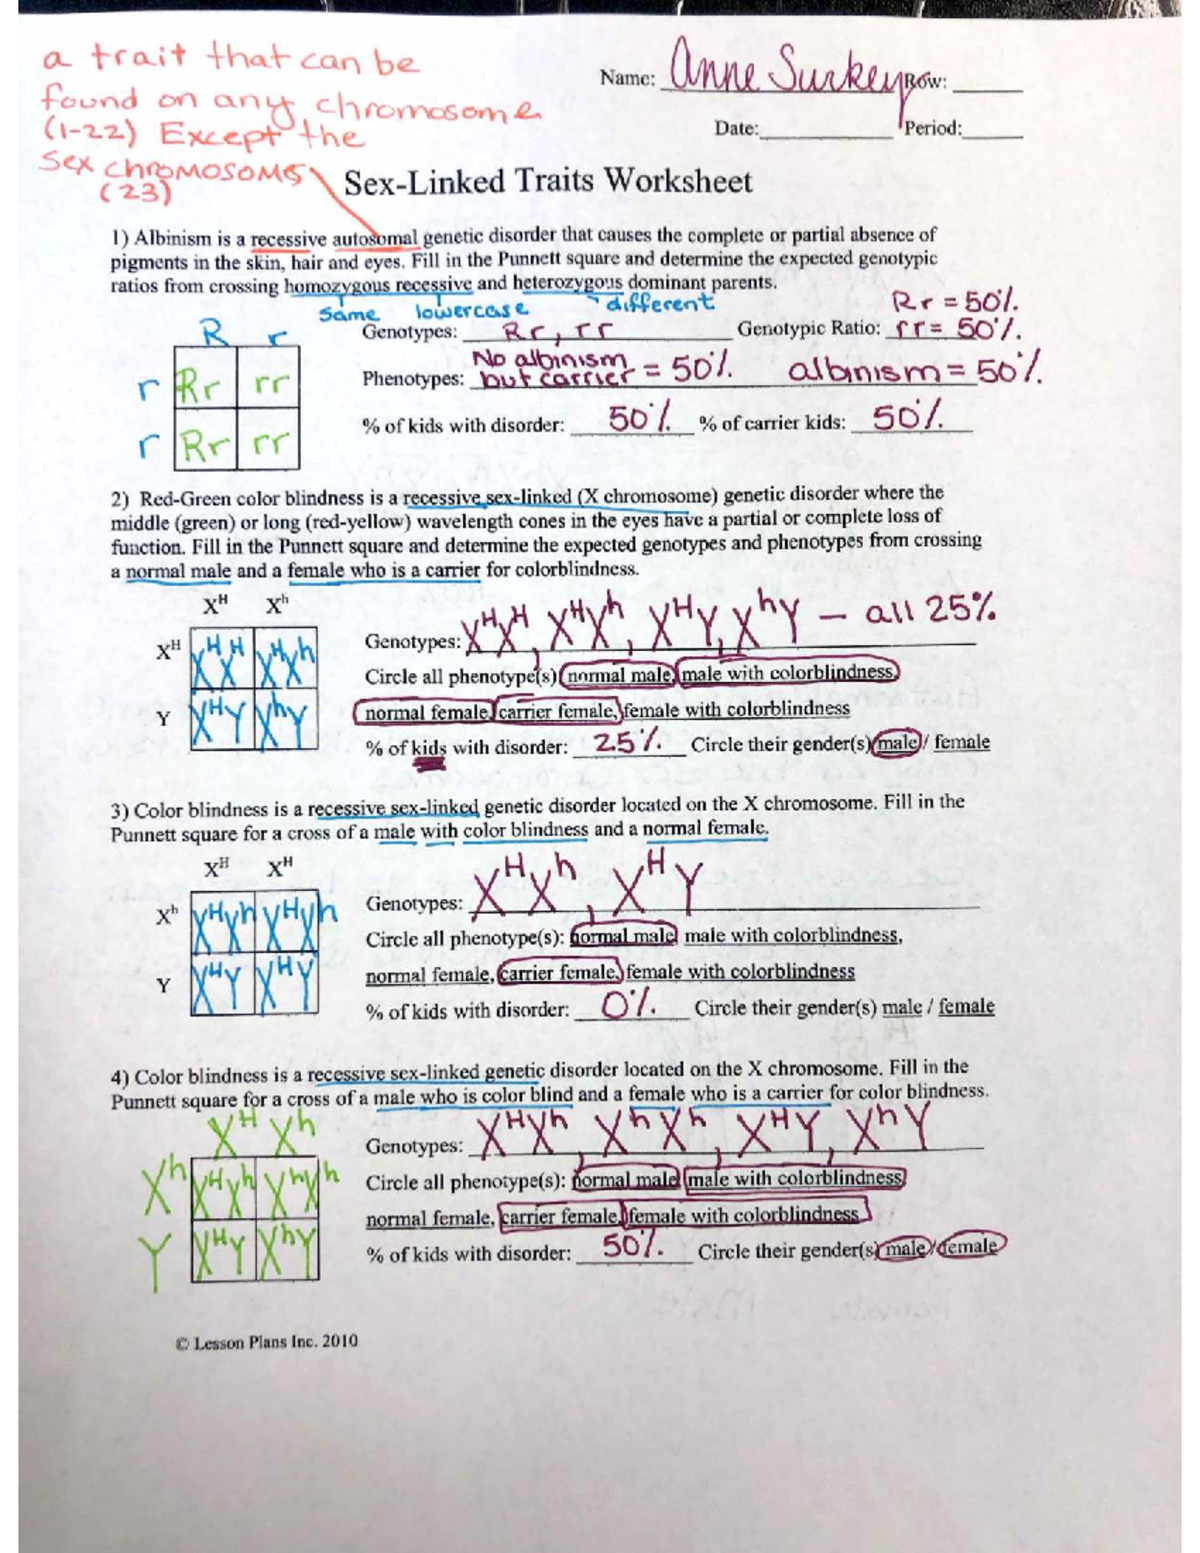 a trait that can be
found on any chromosome
(1-22) Except the
Sex chromosomes
(23)
Name: Anne Surkey Row:
Date: Period:
Sex-Linked Traits Worksheet
1) Albinism is a recessive autosomal genetic disorder that causes the complete or partial absence of
pigments in the skin, hair and eyes. Fill in the Punnett square and determine the expected genotypic
ratios from crossing homozygous recessive and heterozygous dominant parents.
same lowercase different
Rr = 50%.
R r
Genotypes: Rr, rr Genotypic Ratio: rr = 50%.
r Rr rr
No albinism
Phenotypes: but carrier = 50%. albinism = 50%.
r Rr rr
% of kids with disorder: 50%. % of carrier kids: 50%.
2) Red-Green color blindness is a recessive sex-linked (X chromosome) genetic disorder where the
middle (green) or long (red-yellow) wavelength cones in the eyes have a partial or complete loss of
function. Fill in the Punnett square and determine the expected genotypes and phenotypes from crossing
a normal male and a female who is a carrier for colorblindness.
Xᴴ Xʰ
Genotypes: XᴴXᴴ, XᴴXʰ, XᴴY, XʰY – all 25%
Xᴴ XᴴXᴴ XᴴXʰ
Circle all phenotype(s) normal male, male with colorblindness,
normal female, carrier female, female with colorblindness
Y XᴴY XʰY
% of kids with disorder: 25%. Circle their gender(s) male / female
3) Color blindness is a recessive sex-linked genetic disorder located on the X chromosome. Fill in the
Punnett square for a cross of a male with color blindness and a normal female.
Xᴴ Xᴴ
Genotypes: XᴴXʰ, XᴴY
Xʰ XᴴXʰ XᴴXʰ
Circle all phenotype(s): normal male, male with colorblindness,
normal female, carrier female, female with colorblindness
Y XᴴY XᴴY
% of kids with disorder: 0%. Circle their gender(s) male / female
4) Color blindness is a recessive sex-linked genetic disorder located on the X chromosome. Fill in the
Punnett square for a cross of a male who is color blind and a female who is a carrier for color blindness.
Xᴴ Xʰ
Genotypes: XᴴXʰ, XʰXʰ, XᴴY, XʰY
Xʰ XᴴXʰ XʰXʰ
Circle all phenotype(s): normal male, male with colorblindness,
normal female, carrier female, female with colorblindness
Y XᴴY XʰY
% of kids with disorder: 50%. Circle their gender(s) male / female
© Lesson Plans Inc. 2010